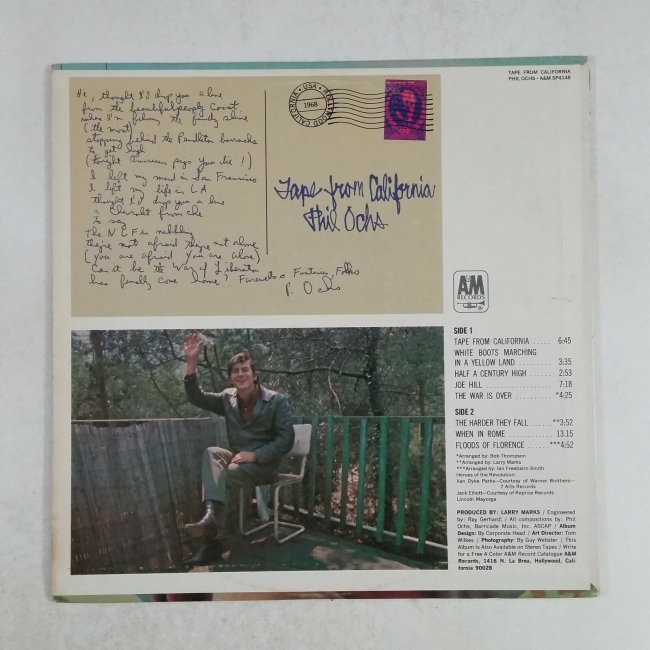 TAPE FROM CALIFORNIA
PHIL OCHS · A&M SP4148
Hi, thought I'd drop you a line
from the beautiful people Court
when I'm filming the family
(the most)
stopping behind the Pendleton barracks
to get high
(tonight American pigs you die!)
I left my mind in San Francisco
I left my life in L A
thought I'd drop you a line
a Chevrolet from
to say
The N L F is nibbling
they're not afraid they're not alone
(you are afraid you are alone)
Can it be the War of Liberation
has finally come home? Farewells & Fantasies, Folks
P. Ochs
HOLLYWOOD CALIFORNIA · USA ·
1968
Tape from California
Phil Ochs
A&M
RECORDS
SIDE 1
TAPE FROM CALIFORNIA ..... 6:45
WHITE BOOTS MARCHING
IN A YELLOW LAND .......... 3:35
HALF A CENTURY HIGH ...... 2:53
JOE HILL .................. 7:18
THE WAR IS OVER .......... *4:25
SIDE 2
THE HARDER THEY FALL ......**3:52
WHEN IN ROME ............ 13.15
FLOODS OF FLORENCE .....***4:52
*Arranged by: Bob Thompson
**Arranged by: Larry Marks
***Arranged by: Ian Freebairn-Smith
Heroes of the Revolution:
Van Dyke Parks—Courtesy of Warner Brothers—
7 Arts Records
Jack Elliott—Courtesy of Reprise Records
Lincoln Mayorga
PRODUCED BY: LARRY MARKS / Engineered
by: Ray Gerhardt / All compositions by: Phil
Ochs, Barricade Music, Inc. ASCAP / Album
Design: By Corporate Head / Art Director: Tom
Wilkes / Photography: By Guy Webster / This
Album Is Also Available on Stereo Tapes / Write
for a Free 4 Color A&M Record Catalogue A&M
Records, 1416 N. La Brea, Hollywood, Cali-
fornia 90028